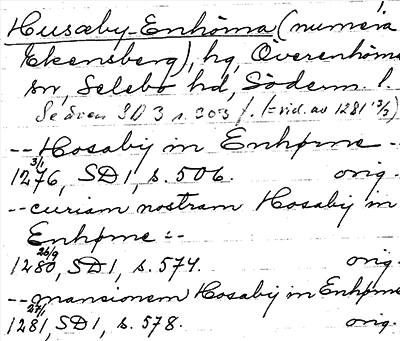 Husaby-Enhörna (numera
Ekensberg), hg, Överenhörna
sn, Selebo hd, Söderm. l.
Se även SD 3 s. 303 f. (= vid. av 1281 13/3)
-- Hosabij in Enhørne --
3/1 1276, SD 1, s. 506. orig.
-- curiam nostram Hosabij in
Enhørne :-
26/9 1280, SD 1, s. 574. orig.
-- mansionem Hosabij in Enhørne
27/1 1281, SD 1, s. 578. orig.